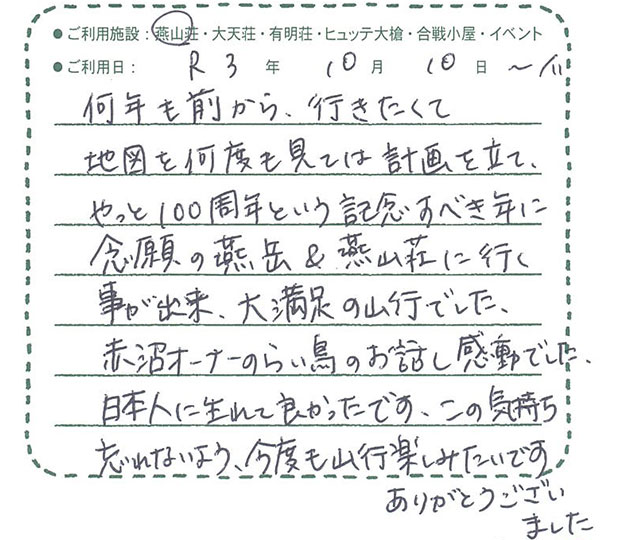 ●ご利用施設：燕山荘・大天荘・有明荘・ヒュッテ大槍・合戦小屋・イベント
●ご利用日： R3年 10月 10日 〜11
何年も前から、行きたくて
地図を何度も見ては計画を立て、
やっと100周年という記念すべき年に
念願の燕岳&燕山荘に行く
事が出来、大満足の山行でした、
赤沼オーナーのらい鳥のお話し感動でした、
日本人に生れて良かったです、この気持ち
忘れないよう、今度も山行楽しみたいです
ありがとうござい
ました